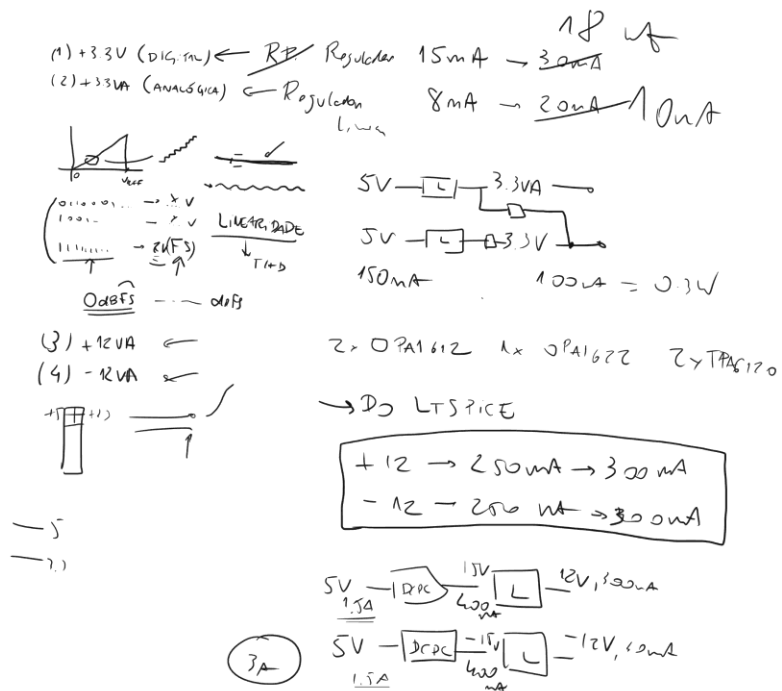 18
(1) +3.3V (DIGITAL) ← Regulador 15mA → 30mA
(2) +3.3VA (ANALÓGICA) ← Regulador 8mA → 20mA 10mA
Linear
0 VREF
0110001... → x V
1001.. → x V
111111.... → 2V(FS) LINEARIDADE
THD
0dBFS ---- dBFS
5V L 3.3VA
5V L 3.3V
150mA 100mA = 0.3W
(3) +12VA ←
(4) -12VA ←
2x OPA1612 1x OPA1622 2xTPA6120
→ DO LTSPICE
+12 → 250mA → 300mA
-12 → 250 mA → 300mA
5
5V DCDC 15V L 12V, 300mA
1.5A 400mA
5V DCDC -15V L -12V,
1.5A 400mA
3A